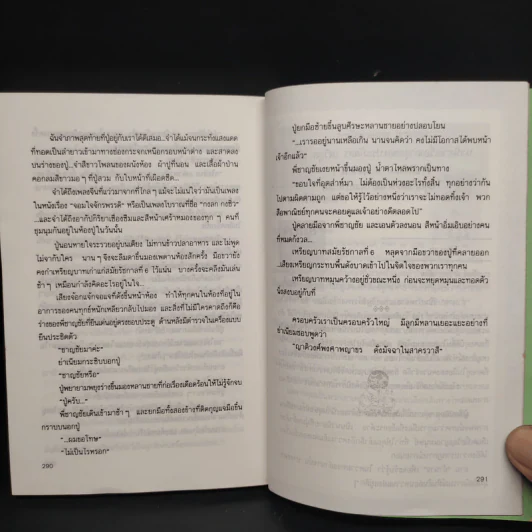 ฉันจำภาพสุดท้ายที่ปู่อยู่กับเราได้ดีเสมอ..จำได้แม้จนกระทั่งแสงแดด
ที่ทอดเป็นลำยาวเข้ามาทางช่องกระจกเหนือกรอบหน้าต่าง และสาดลง
บนร่างของปู่...จำสีขาวโพลนของผนังห้อง ผ้าปูที่นอน และเสื้อผ้าป่าน
คอกลมสีขาวมอ ๆ ที่ปู่สวม กับใบหน้าที่เผือดซีด...
จำได้ถึงเพลงจีนที่แว่วมาจากที่ไกล ๆ แม้จะไม่แน่ใจว่ามันเป็นเพลง
ในหนังเรื่อง "จอมใจจักรพรรดิ" หรือเป็นเพลงโบราณที่ชื่อ "กงลก กงชิ่ว"
...และจำได้ถึงอากัปกิริยาเชื่องซึมและสีหน้าเศร้าหมองของทุก ๆ คนที่
ชุมนุมกันอยู่ในห้องปู่ในวันนั้น
ปู่นอนหายใจระรวยอยู่บนเตียง ไม่ทานข้าวปลาอาหาร และไม่พูด
ไม่จากับใคร นาน ๆ จึงจะลืมตาขึ้นมองเพดานห้องสักครั้ง มือขวายัง
คงกำเหรียญบาทเก่าแก่สมัยรัชกาลที่ ๖ ไว้แน่น บางครั้งจะคลึงมันเล่น
ช้า ๆ เหมือนกำลังคิดอะไรอยู่ในใจ...
เสียงจ้อกแจ้กจอแจที่ดังขึ้นหน้าห้อง ทำให้ทุกคนในห้องที่อยู่ใน
อาการของคนทุกข์หนักเหลียวกลับไปมอง และสิ่งที่ไม่มีใครคาดถึงก็คือ
ร่างของพี่ชาญชัยที่ยืนเด่นอยู่ตรงขอบประตู ด้านหลังมีตำรวจในเครื่องแบบ
ยืนประชิดตัว
"ชาญชัยมาค่ะ"
ย่าเนียมกระซิบบอกปู่
"ชาญชัยหรือ"
ปู่พยายามพยุงร่างขึ้นมองหลานชายที่ก่อเรื่องเดือดร้อนให้ไม่รู้จักจบ
"ปู่ครับ..."
พี่ชาญชัยเดินเข้ามาช้า ๆ และยกมือทั้งสองข้างที่ติดกุญแจมือขึ้น
กราบบนอกปู่
"...ผมขอโทษ"
"ไม่เป็นไรหรอก"
290
ปู่ยกมือซ้ายขึ้นลูบศีรษะหลานชายอย่างปลอบโยน
"...เรารออยู่นานเหลือเกิน นานจนคิดว่า คงไม่มีโอกาสได้พบหน้า
เจ้าอีกแล้ว"
พี่ชาญชัยเงยหน้าขึ้นมองปู่ น้ำตาไหลพรากเป็นทาง
"ขอบใจที่อุตส่าห์มา ไม่ต้องเป็นห่วงอะไรทั้งสิ้น ทุกอย่างว่ากัน
ไปตามผิดตามถูก แต่ขอให้รู้ไว้อย่างหนึ่งว่าเราจะไม่ทอดทิ้งเจ้า พวก
สือพาณิชย์ทุกคนจะคอยดูแลเจ้าอย่างดีตลอดไป"
ปู่คลายมือจากพี่ชาญชัย และเอนตัวลงนอน สีหน้าอิ่มเอิบอย่างคน
ที่หมดกังวล...
เหรียญบาทสมัยรัชกาลที่ ๖ หลุดจากมือขวาของปู่ที่คลายออก
...เสียงเหรียญกระทบพื้นดังบาดเข้าไปในจิตใจของพวกเราทุกคน
เหรียญบาทหมุนคว้างอยู่ชั่วขณะหนึ่ง ก่อนจะหยุดหมุนและทอดตัว
นิ่งสงบอยู่กับที่
ครอบครัวเราเป็นครอบครัวใหญ่ มีลูกมีหลานเยอะแยะอย่างที่
ย่าเนียมชอบพูดว่า
"ญาติวงศ์พงศาพญาธร ดังมัจฉาในสาครวาสี"
291